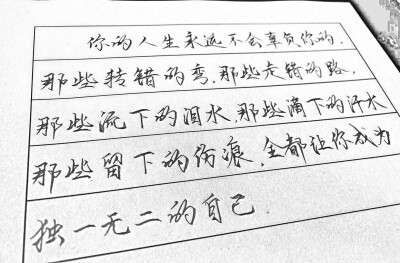 你的人生永远不会辜负你的.
那些转错的弯.那些走错的路.
那些流下的泪水.那些滴下的汗水
那些留下的伤痕.全都让你成为
独一无二的自己.